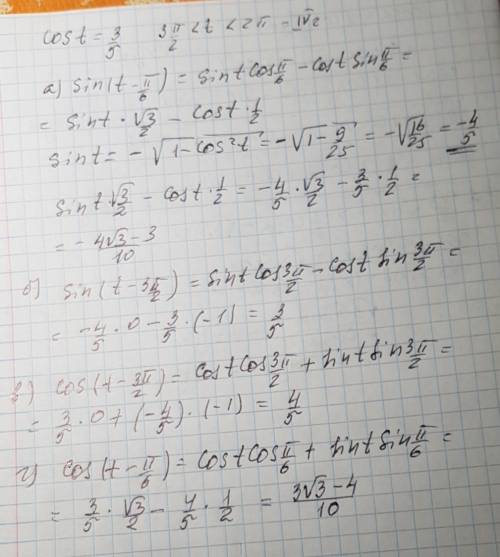 cos t = 3/5   3π/2 < t < 2π - IV г
а) sin(t - π/6) = sin t cos π/6 - cos t sin π/6 =
= sin t · √3/2 - cos t · 1/2
sin t = - √(1 - cos²t) = - √(1 - 9/25) = - √(16/25) = -4/5
sin t √3/2 - cos t · 1/2 = -4/5 · √3/2 - 3/5 · 1/2 =
= (-4√3 - 3)/10
б) sin(t - 3π/2) = sin t cos 3π/2 - cos t sin 3π/2 =
= -4/5 · 0 - 3/5 · (-1) = 3/5
в) cos(t - 3π/2) = cos t cos 3π/2 + sin t sin 3π/2 =
= 3/5 · 0 + (-4/5) · (-1) = 4/5
г) cos(t - π/6) = cos t cos π/6 + sin t sin π/6 =
= 3/5 · √3/2 - 4/5 · 1/2 = (3√3 - 4)/10